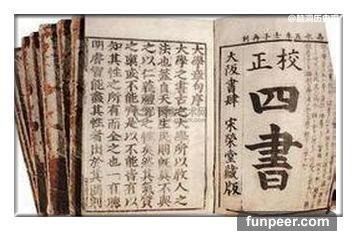 校正
四書
大阪書肆 宋榮堂藏版
大學章句序
大學之書古之大學所以教人之
法也蓋自天降生民則既莫不與
之以仁義禮智之性矣然其氣質
之稟或不能齊是以不能皆有以
知其性之所有而全之也一有聰
明睿智能盡其性者出於其間則
funpeer.com